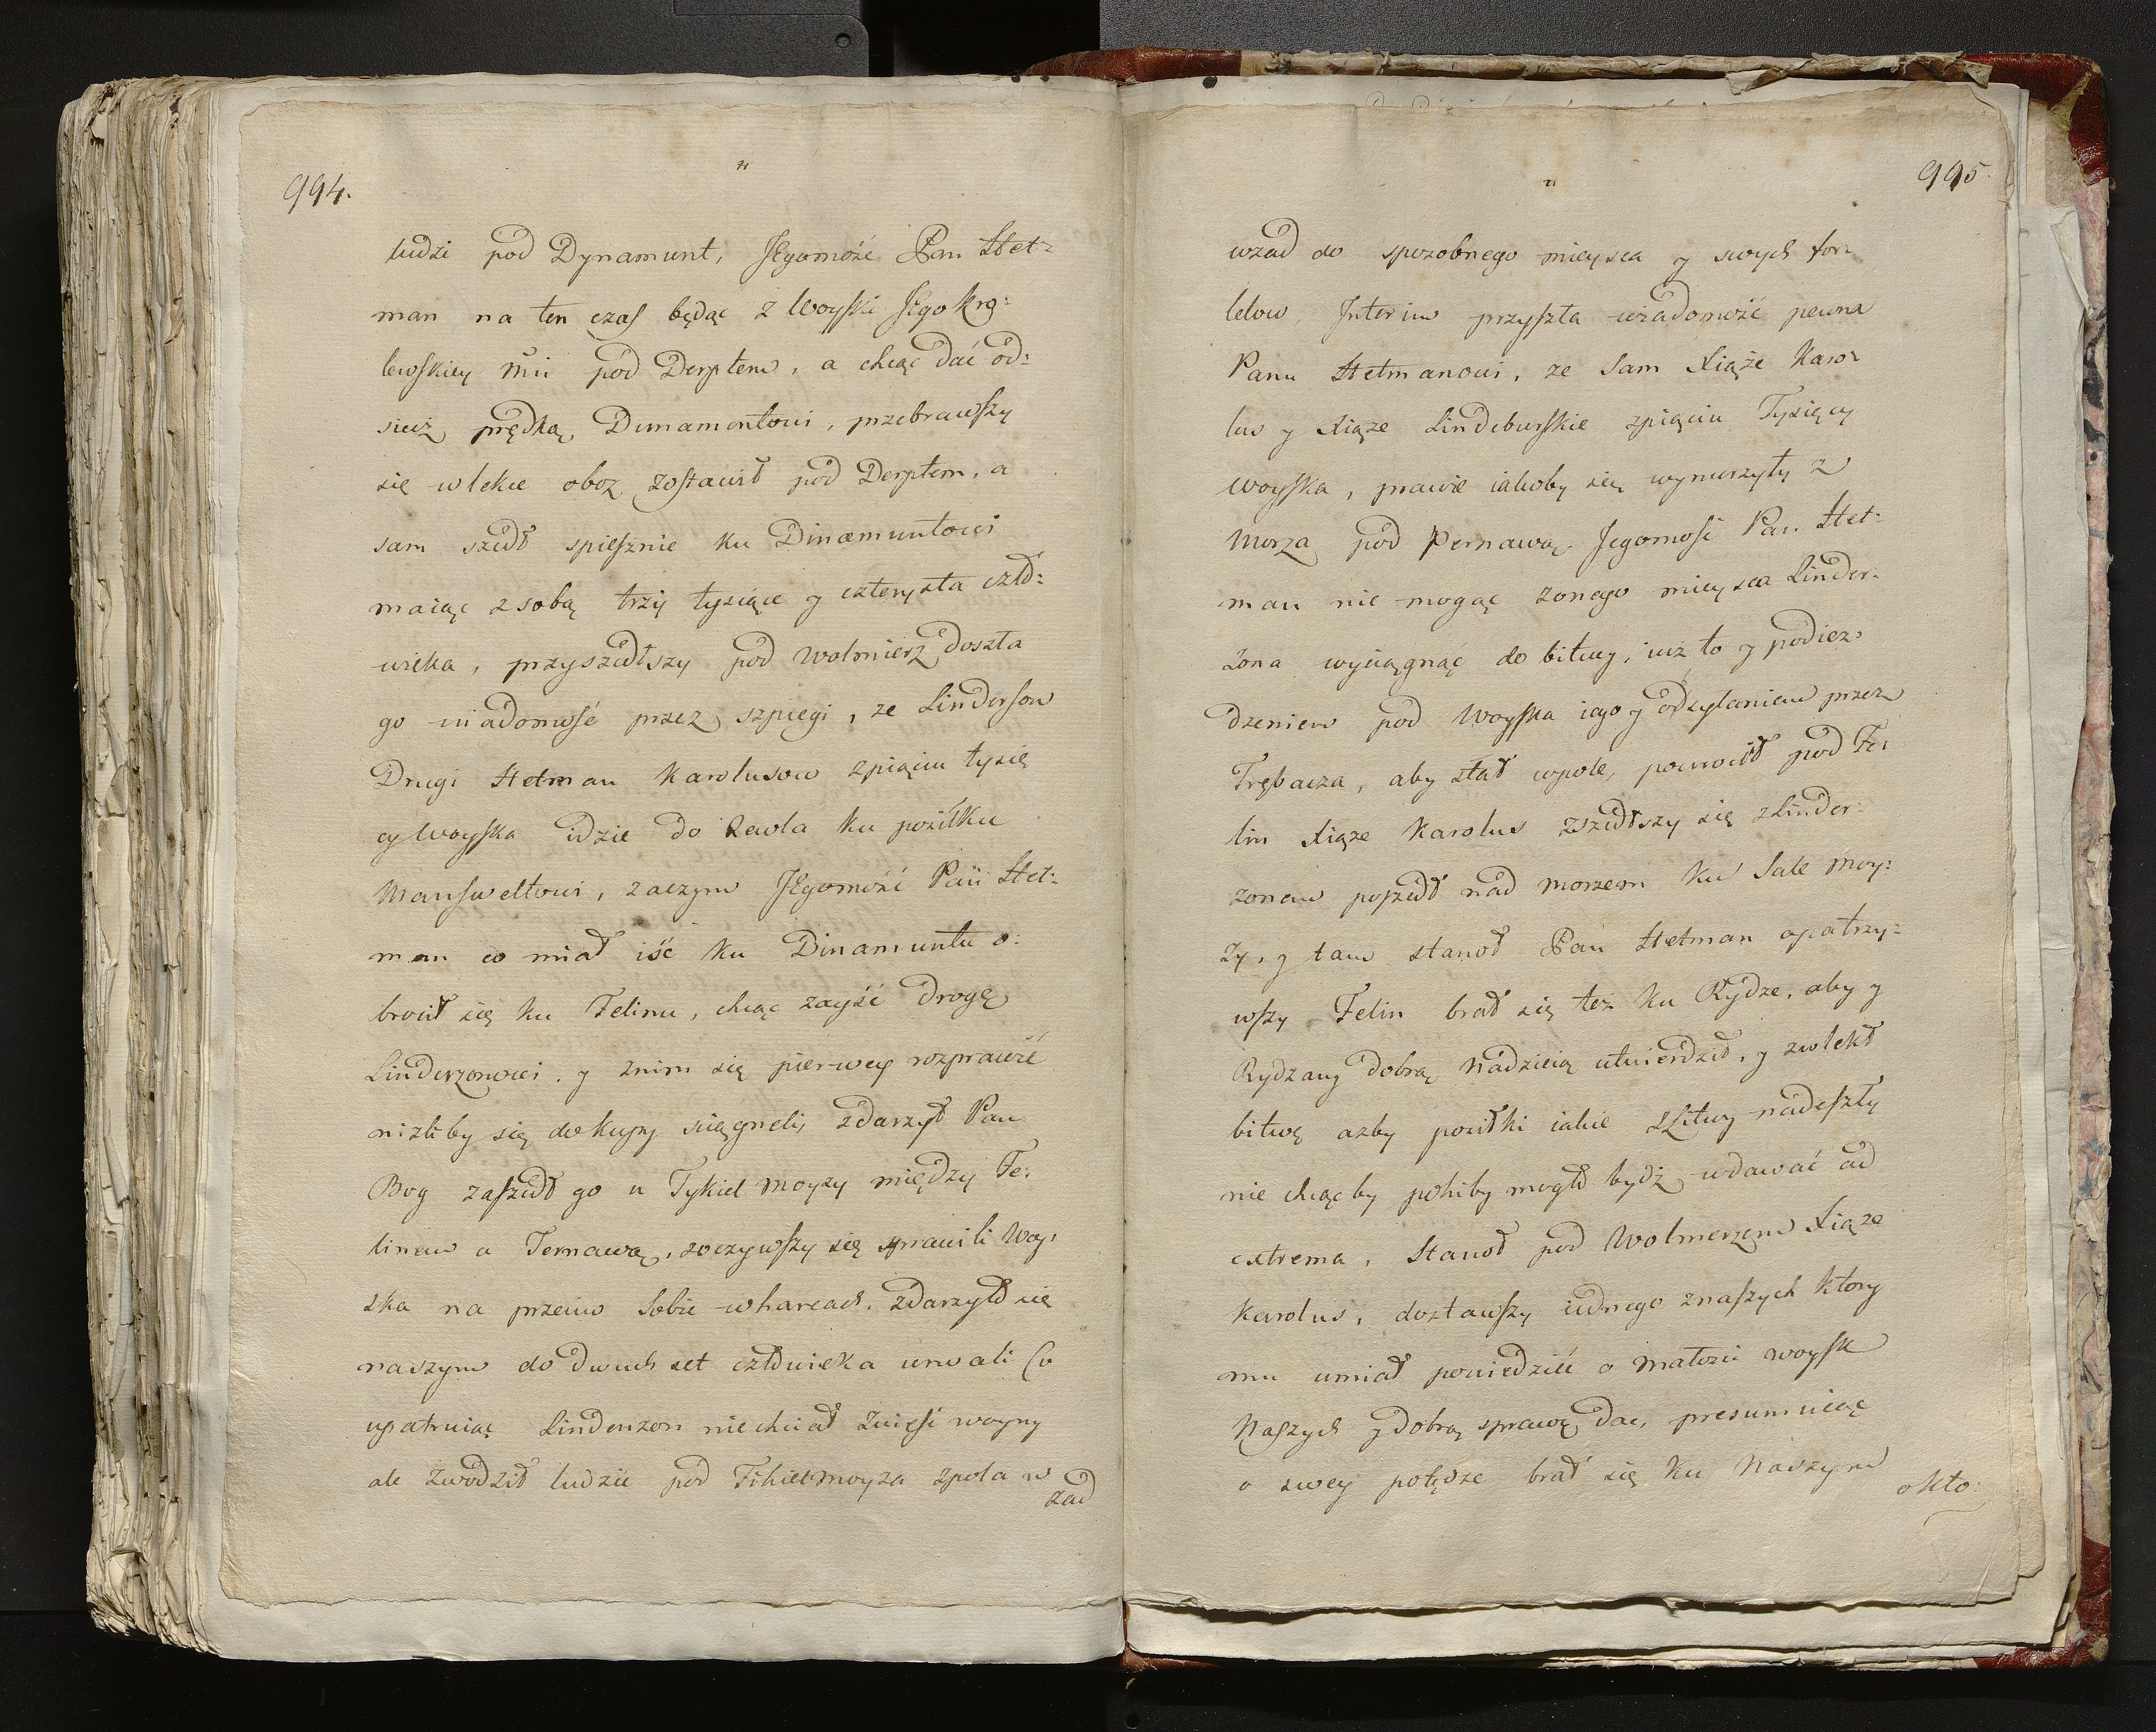 994.
ludzi pod Dynamunt, JEgomość Pan Het=
man na ten czas będąc z Woyski JEgo Kro=
lewskiey Mci pod Derptem, a chcąc dać od=
siecz prędką Dunamontowi, przebrawszy
się w lekce oboz zostawił pod Derptem, a
sam szedł spiesznie ku Dinamuntowi
maiąc z sobą trzy tysiące y czterysta czło=
wieka, przyszedłszy pod Wolmierz doszła
go wiadomość przez szpiegi, ze Linderson
Drugi Hetman Karolusow zpiąciu tysię
cy Woyska idzie do Rewla ku posiłku
Mansweltowi, zaczym JEgomość Pan Het=
man co miał iść ku Dinamuntu o=
brocił się ku Felinu, chcąc zayść drogę
Linderzonowi, y znim się pierwey rozprawić
nizliby się do kupy sciągneli, zdarzył Pan
Bog zaszedł go u Tykiel moyzy między Fe=
linem a Pernawą, zoczywszy się sprawili Woy=
ska na przeciw sobie w harcach. zdarzyło się
naszym do dwuch set człowieka urwali Co
upatruiąc Lindenzon niechciał zwięść woyny
ale zwodził ludzie pod Fikielmoyza zpola w
zad
995.
wzad do sposobnego mieysca y swych for=
telow Interim przyszła wiadomość pewna
Panu Hetmanowi, ze Sam Xiąże Karo=
lus y Xiąze Lindeburskie zpiąciu Tysięcy
Woyska, prawie iakoby się wynurzyły z
Morza pod Pernawą. Jegomość Pan Het=
man nie mogąc zonego mieysca Linder=
zona wyciągnąć do bitwy, iuz to y podiez=
dzeniem pod Woyska iego y odsylaniem przez
Trębacza, aby stał wpole, powrocił pod Fe=
lin Xiąze Karolus zszedłszy się z Linder=
zonem poszedł nad morzem ku Sale Moy=
zy, y tam stanoł Pan Hetman opatrzy=
wszy Felin brał się też ku Rydze, aby y
Rydzany dobrą nadzieią utwierdził, y zwlekł
bitwę azby posiłki iakie z Litwy nadeszły
nie chcąc by pokiby mogło bydż udawać ad
extrema, Stanoł pod Wolmerzem Xiąze
Karolus, dostawszy iednego znaszych ktory
mu umiał powiedzieć o małości woysk
Naszych y dobrą sprawę dac, presumuiąc
o swey potędze brał się ku Naszym
okto: